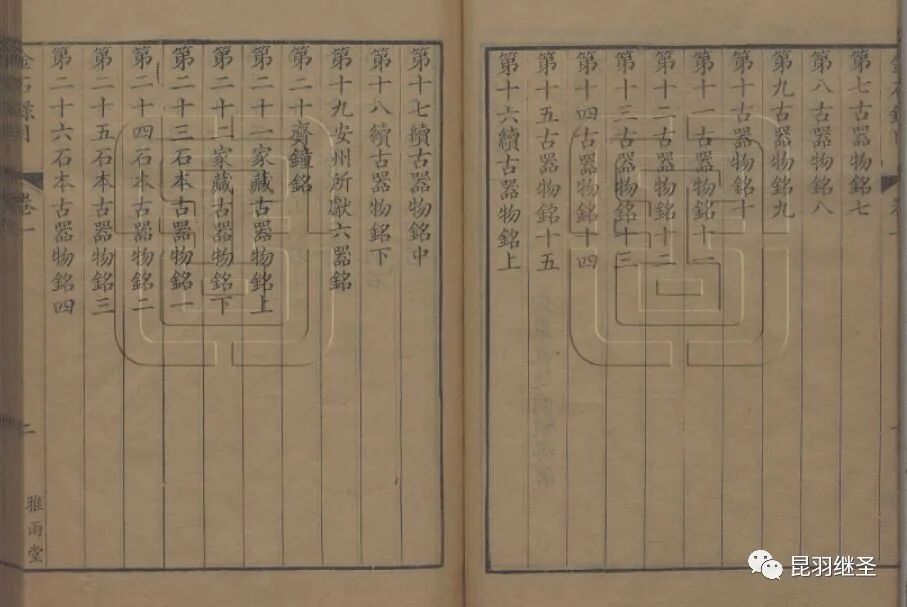 第七古器物銘七
第八古器物銘八
第九古器物銘九
第十古器物銘十
第十一古器物銘十一
第十二古器物銘十二
第十三古器物銘十三
第十四古器物銘十四
第十五古器物銘十五
第十六續古器物銘上
第十七續古器物銘中
第十八續古器物銘下
第十九安州所獻六器銘
第二十齊鐘銘
第二十一家藏古器物銘上
第二十二家藏古器物銘下
第二十三石本古器物銘一
第二十四石本古器物銘二
第二十五石本古器物銘三
第二十六石本古器物銘四
金石錄目
卷一
二
雅雨堂
昆羽继圣